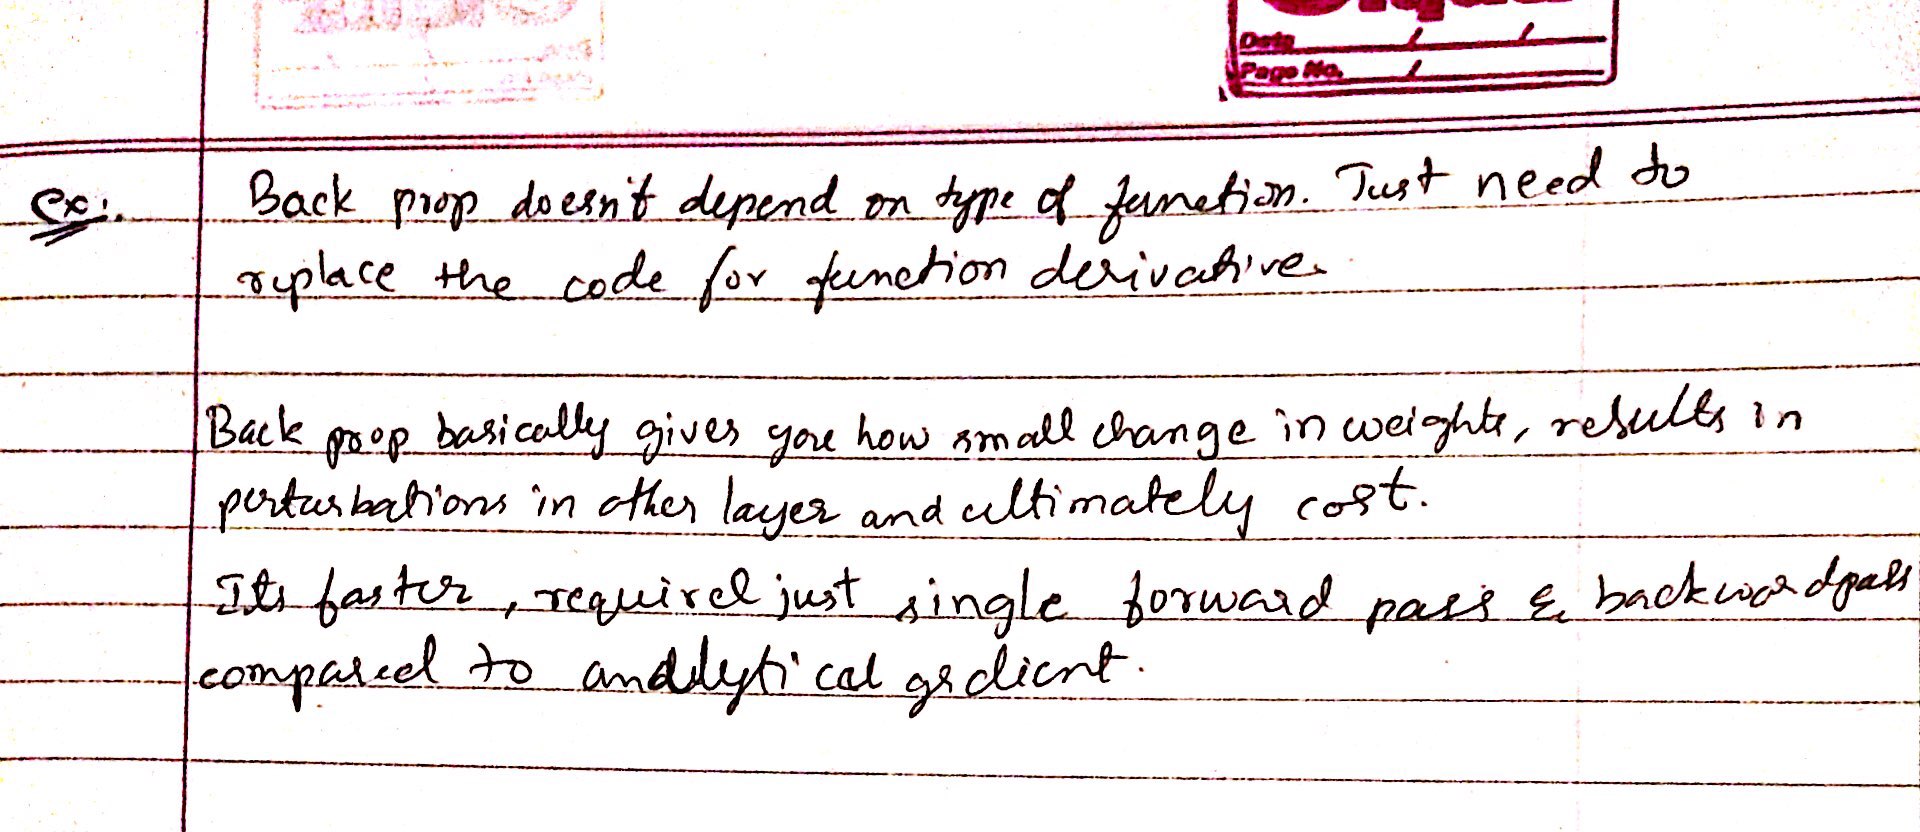 Date / /
Page No. /
Ex:.
Back prop doesn't depend on type of function. Just need to
replace the code for function derivative.
Back prop basically gives you how small change in weights, results in
perturbations in other layer and ultimately cost.
Its faster, required just single forward pass & backwardpass
compared to analytical grdient.